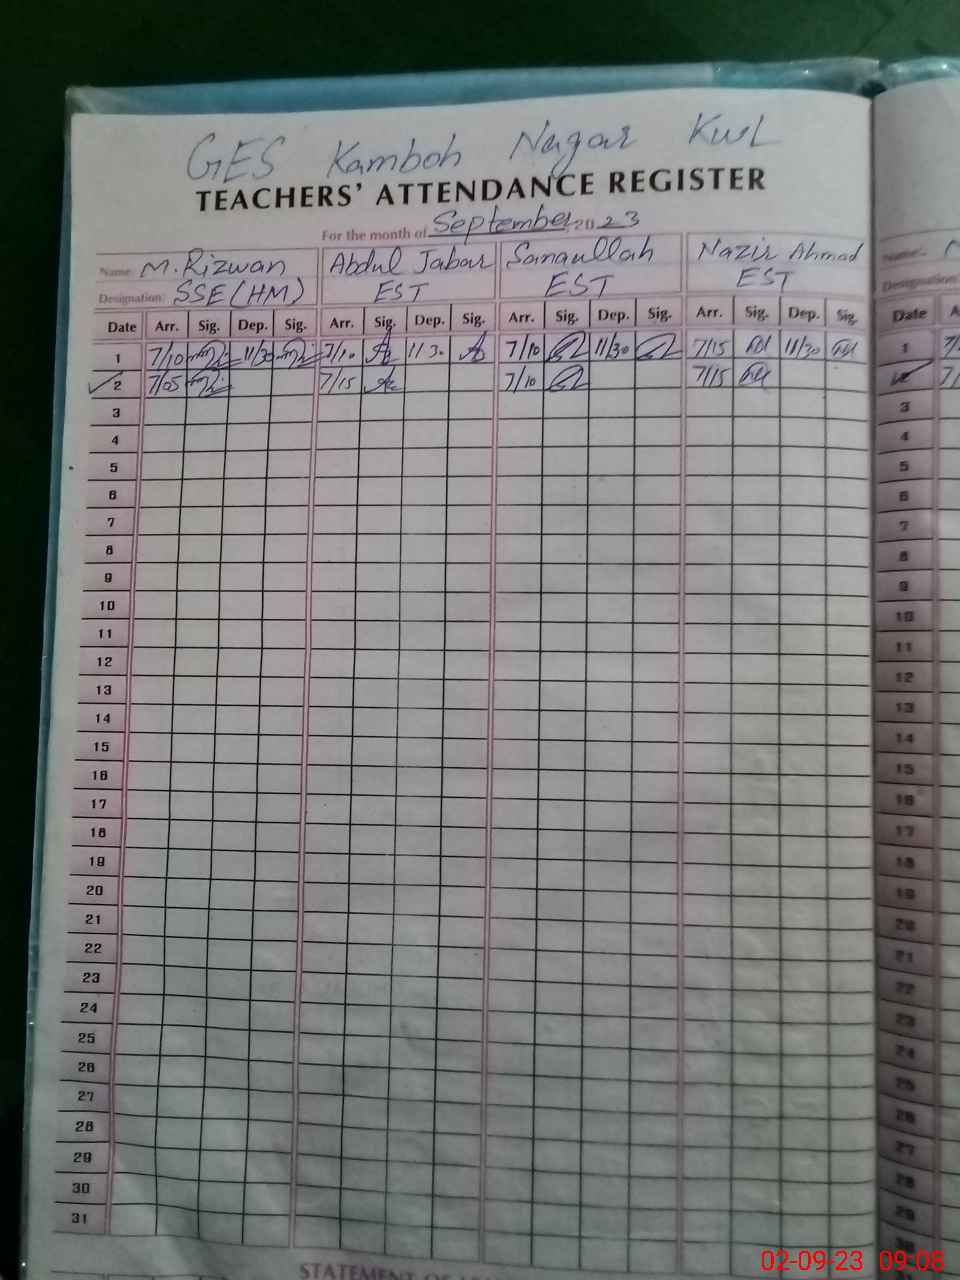 GES Kamboh Nagar KWL
TEACHERS' ATTENDANCE REGISTER
For the month of September 2023
Name: M.Rizwan Abdul Jabar Sanaullah Nazir Ahmad Name:
Designation: SSE(HM) EST EST EST Designation:
Date Arr. Sig. Dep. Sig. Arr. Sig. Dep. Sig. Arr. Sig. Dep. Sig. Arr. Sig. Dep. Sig. Date
1 7/10 11/30 7/10 11:30 7/10 11/30 7/15 11/30 1
2 7/05 7/15 7/10 7/15
3 3
4 4
5 5
6 6
7 7
8 8
9 9
10 10
11 11
12 12
13 13
14 14
15 15
16 16
17 17
18 18
19 19
20 20
21 21
22 22
23 23
24 24
25 25
26 26
27 27
28 28
29 29
30 30
31
STATEMENT OF
02-09-23 09:08